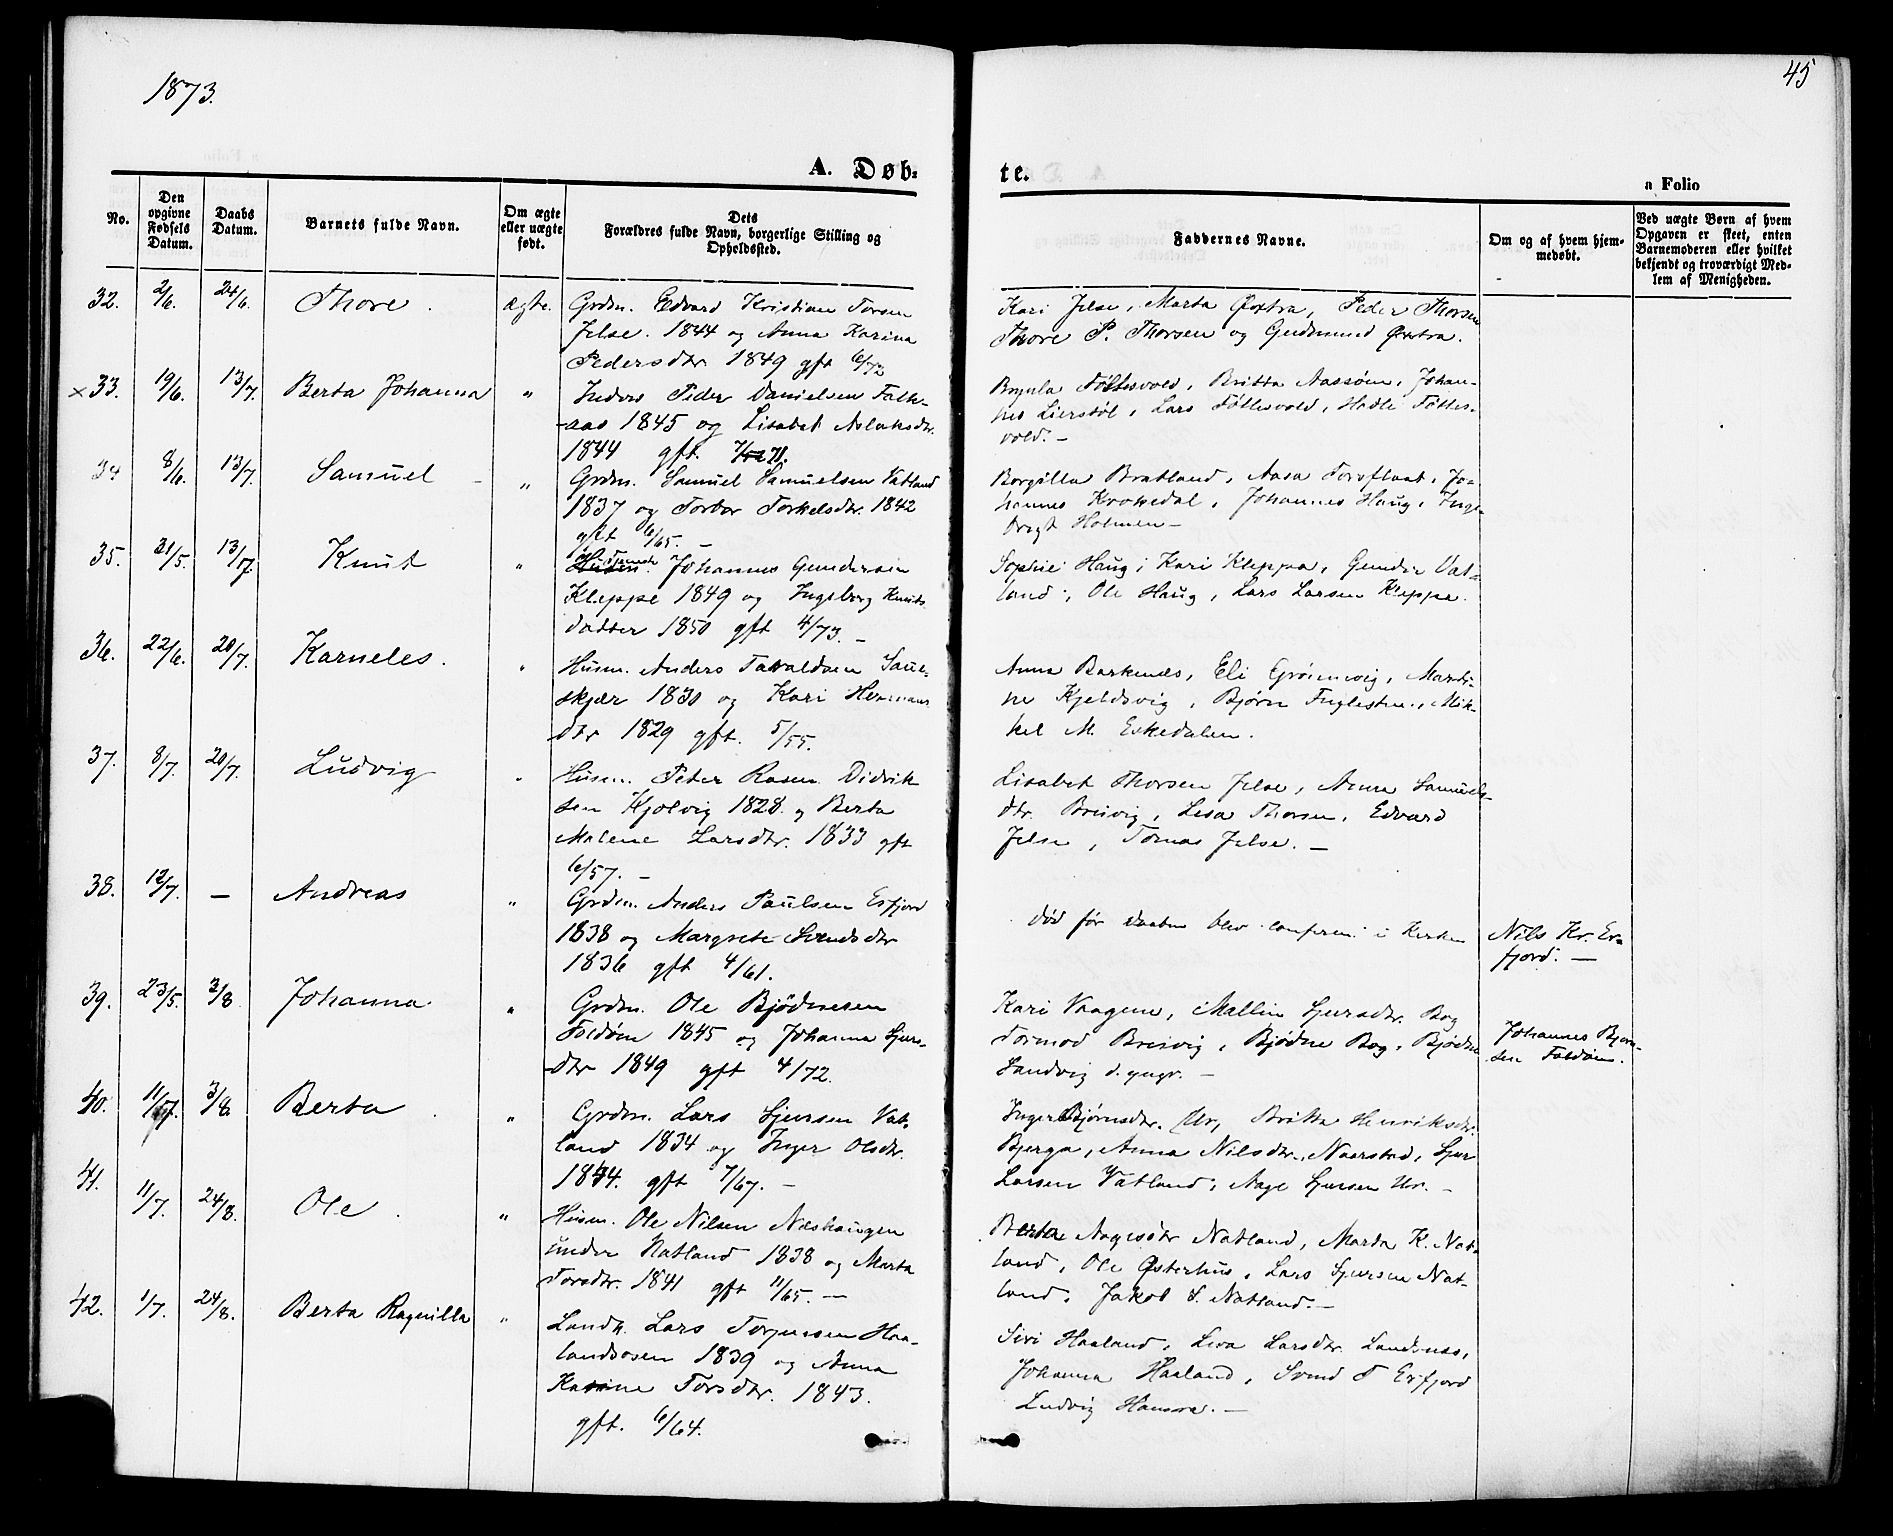 1873.
45
A. Døb-
te.
a Folio
No.
Den opgivne Fødsels Datum.
Daabs Datum.
Barnets fulde Navn.
Om ægte eller uægte født.
Dets Forældres fulde Navn, borgerlige Stilling og Opholdssted.
Faddernes Navne.
Om og af hvem hjemmedøbt.
Ved uægte Børn af hvem Opgaven er skeet, enten Barnemoderen eller hvilket bekjendt og troværdigt Medlem af Menigheden.
32. 2/6. 24/6. Thore. ægte. Grdm. Edvard Kristian Torsen
Jelse. 1844 og Anna Karina
Pedersdtr 1849 gft 6/72
Kari Jelse, Marta Øxtra, Peder Thorsen
Thore P. Thorsen og Gudmund Øxtra.
×33. 19/6. 13/7. Berta Johanna " Inders Peder Danielsen Falk-
aas 1845 og Lisabet Aslaksdtr.
1844 gft. 71.
Føttesvold, Britta Aassøen, Johan-
nes Lierstøl, Lars Føttesvold, Hadle Føttes-
vold. -
34 8/6. 13/7. Samuel " Grdm. Samuel Samuelsen Vatland
1837 og Torbor Torkelsdtr. 1842
gft 6/65. -
Borgilla Bratland, Aasa Jo-
hannes Krokedal, Johannes Haug, Inge-
brigt Holmen -
35. 31/5. 13/7. Knut " Johannes Gundersen
Kleppe 1849 og Ingeborg Knuts
datter 1850 gft 4/73. -
Sophie Haug, Kari Kleppa, Gunder Vat-
land, Ole Haug, Lars Larsen Kleppe.
36. 22/6. 20/7. Karneles. " Husm. Anders Tavaldsen Saue-
skjær 1830 og Kari Hermans
dtr 1829 gft. 5/55.
Anna Barkenæs, Eli Grønevig, Marti-
ne Kjeldsvig, Bjørn Fuglesten, Mik-
kel M. Eskedalen.
37. 8/7. 20/7. Ludvig " Husm. Peter Rasm Didrik
sen Kjølvig 1828 og Berta
Malene Larsdtr. 1833 gft
6/57. -
Lisabet Thorsen Jelse, Anna Samuels-
dtr. Breivig, Lesa Thorsen, Edvard
Jelse, Tomas Jelse. -
38. 12/7. - Andreas " Grdm. Anders Paulsen Erfjord
1838 og Margrete Svendsdtr
1836 gft 4/61.
død før daaben blev conferm. i Kirken
Nils Kr. Er-
fjord. -
39. 23/5. 3/8 Johanna " Grdm. Ole Bjødnesen
Foldøen 1845 og Johanna Sjurs-
dtr 1849 gft 4/72.
Kari Vaagene, Mallin Sjursdtr. Bog
Tormod Breivig, Bjødne Bog, Bjødne
Sandvig d. yngr. -
Johannes Bjørn-
sen Foldøen.
40. 11/7. 3/8. Berta " Grdm. Lars Sjursen Vat-
land 1834 og Inger Olsdtr.
1844. gft 7/67. -
Inger Bjørnsdtr. Ur, Britta Henriksdtr.
Bjerga, Anna Nilsdtr. Naerstad, Sjur
Larsen Vatland, Aage Sjursen Ur. -
41. 11/7. 24/8. Ole. " Husm. Ole Nilsen Neshaugen
under Natland 1838 og Marta
Torsdtr. 1841 gft 11/65. -
Berta Aagesdtr Natland, Marta K. Nat-
land, Ole Østerhus, Lars Sjursen Nat-
land, Jakob S. Natland. -
42. 1/7. 24/8. Berta Ragnilla " Landh. Lars Torjersen Haa-
landsosen 1839 og Anna
Karine Torsdtr. 1843.
gft. 6/64.
Siri Haaland, Lars dtr. Landsnes,
Johanna Haaland, Svend T Erfjord
Ludvig Hansen. -